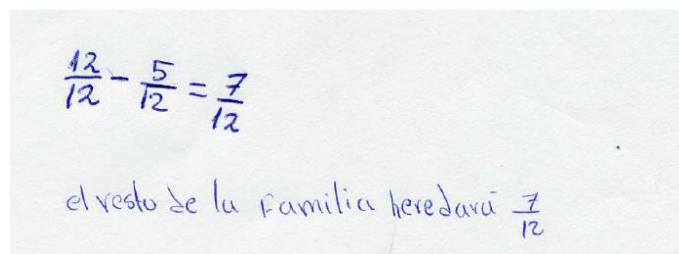 12/12 - 5/12 = 7/12
el resto de la Familia heredará 7/12